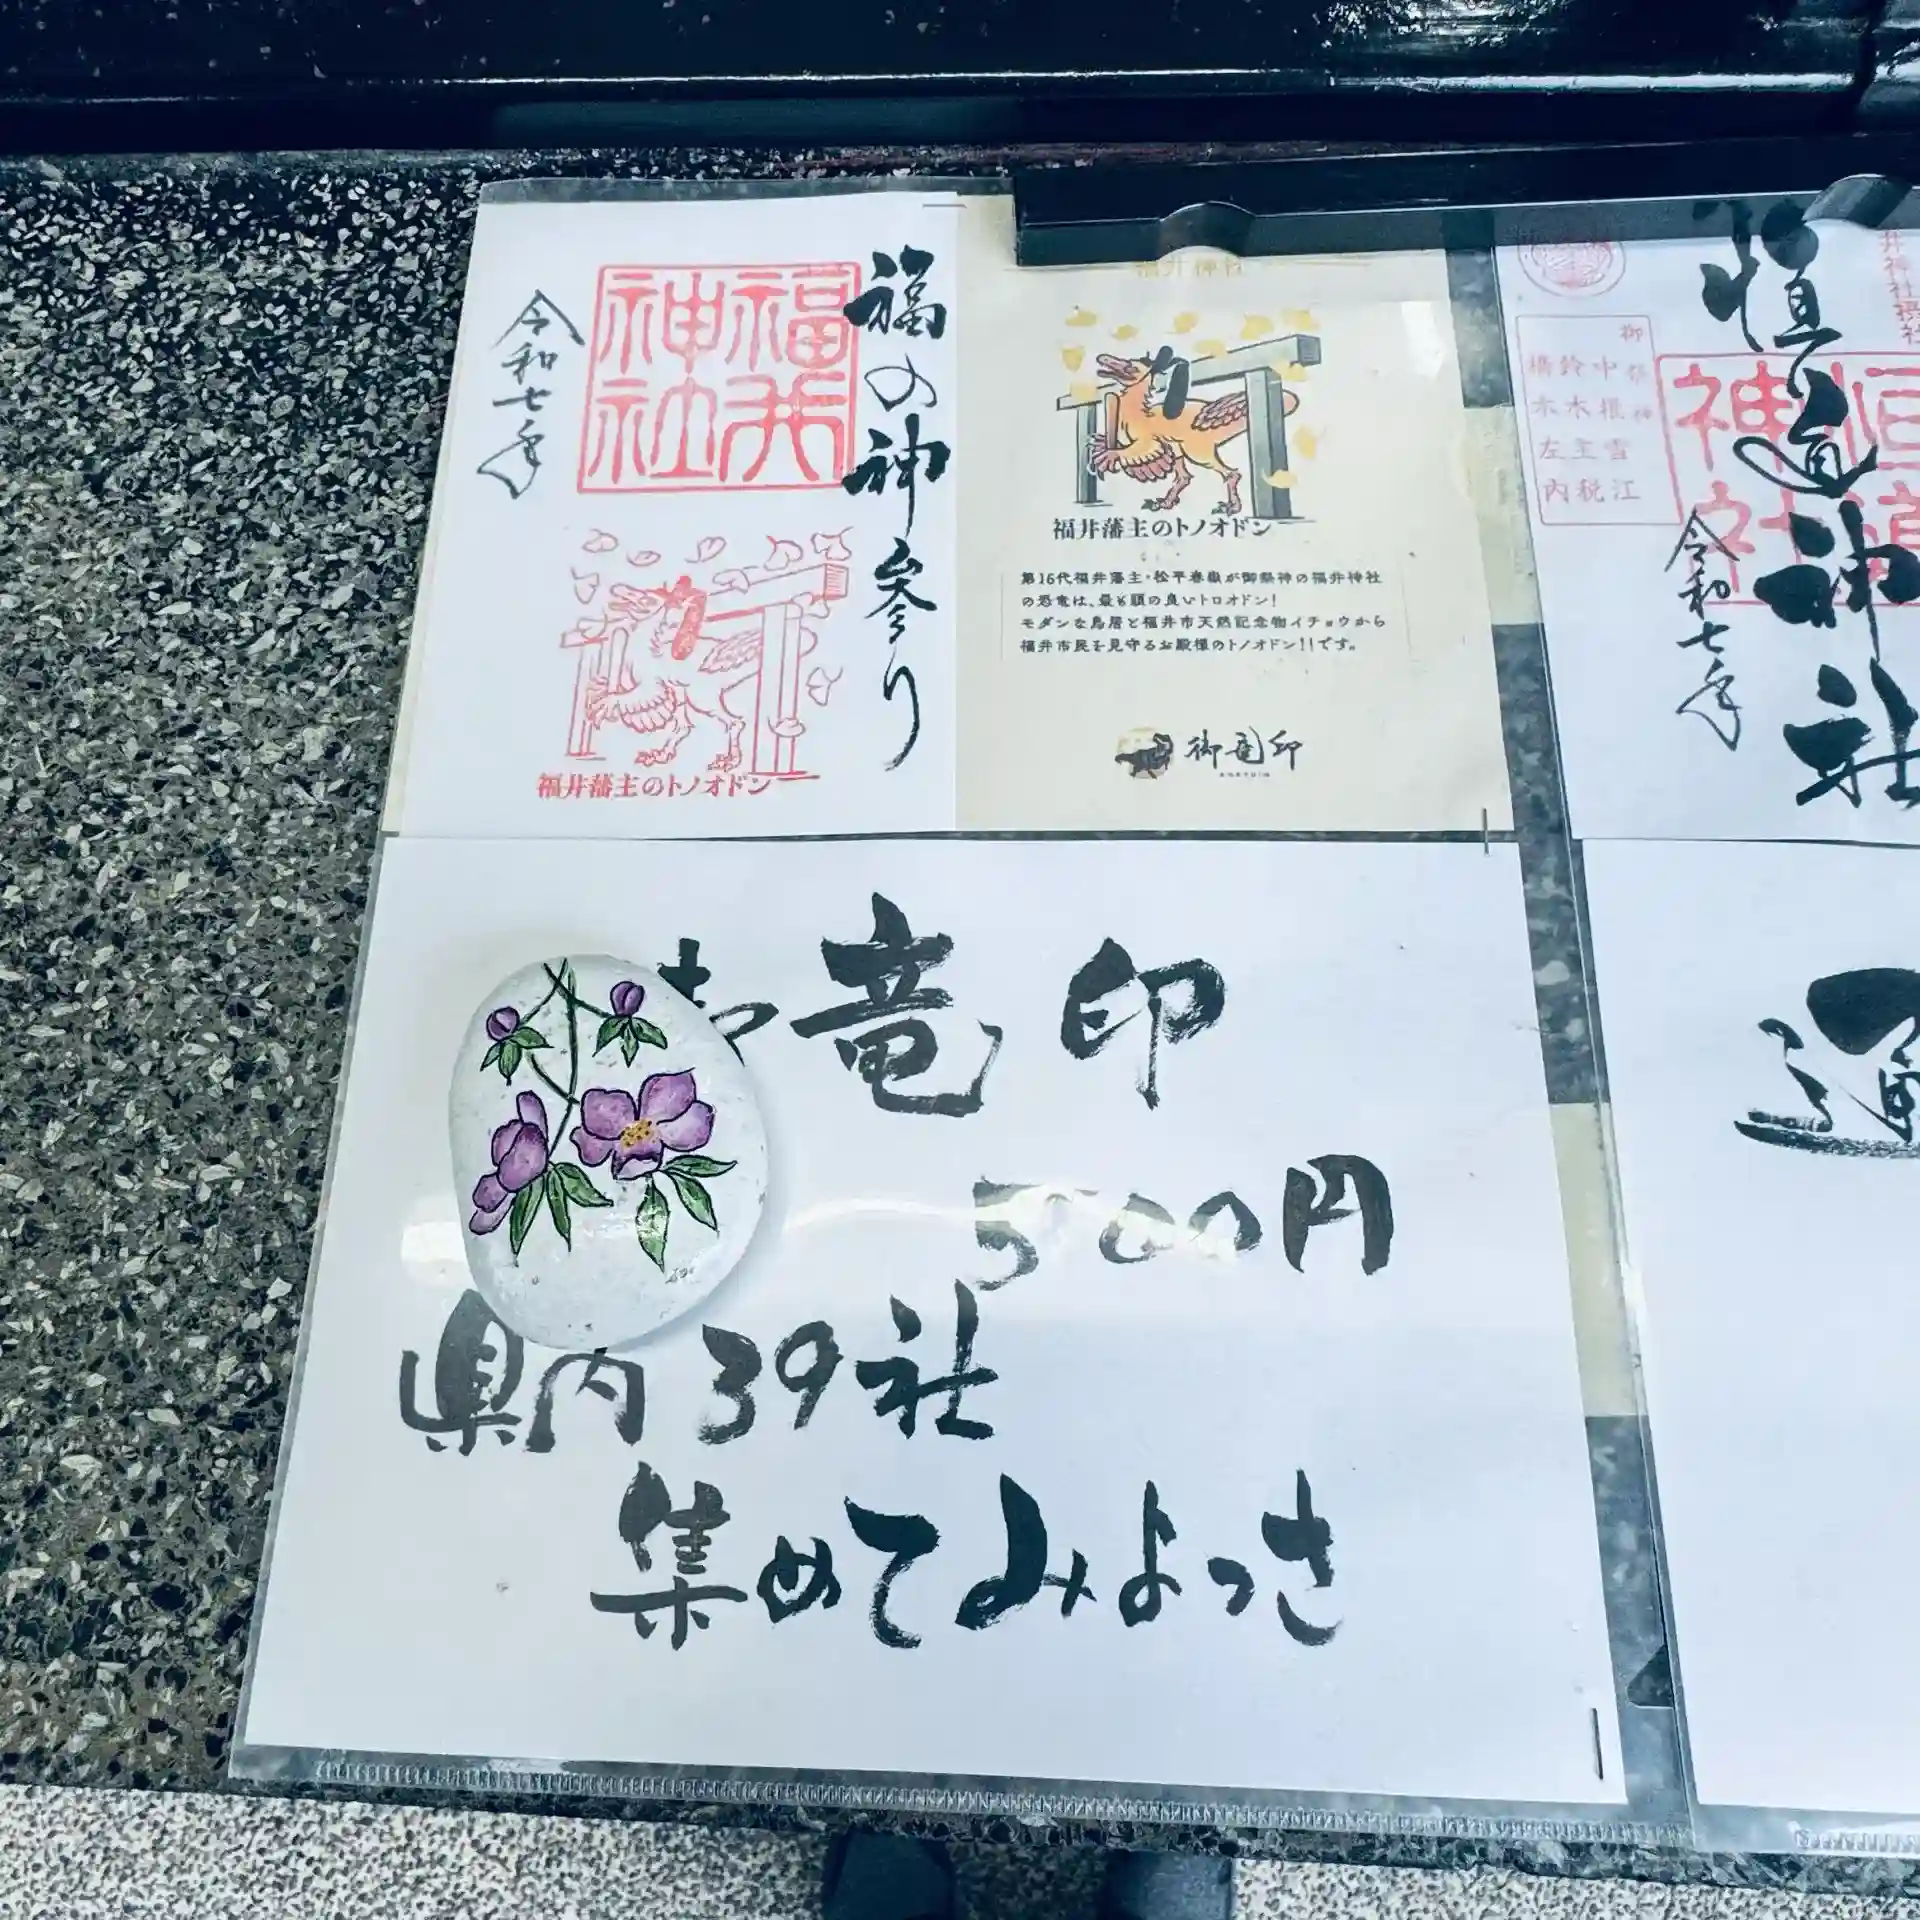 福の神参り
福井神社
令和七年
福井藩主のトノオドン
福井神社
福井藩主のトノオドン
第16代福井藩主・松平春嶽が御祭神の福井神社
の恐竜は、最も頭の良いトロオドン!
モダンな鳥居と福井市天然記念物イチョウから
福井市民を見守るお殿様のトノオドン!!です。
御竜印
井神社摂社
恒道神社
令和七年
御祭神
中根雪江
鈴木主税
橋本左内
竜印
500円
県内39社
集めてみよっさ
通